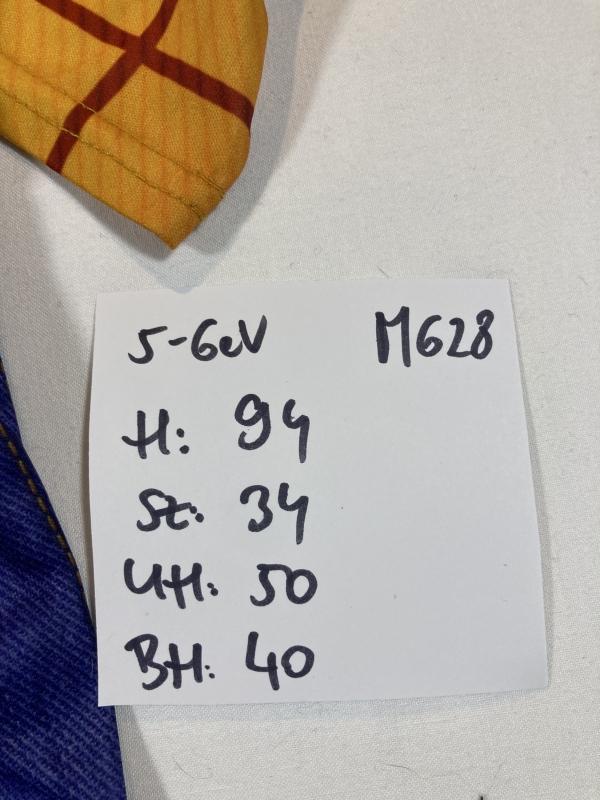 5-6év M628
H: 94
Sz: 34
UH: 50
BH: 40